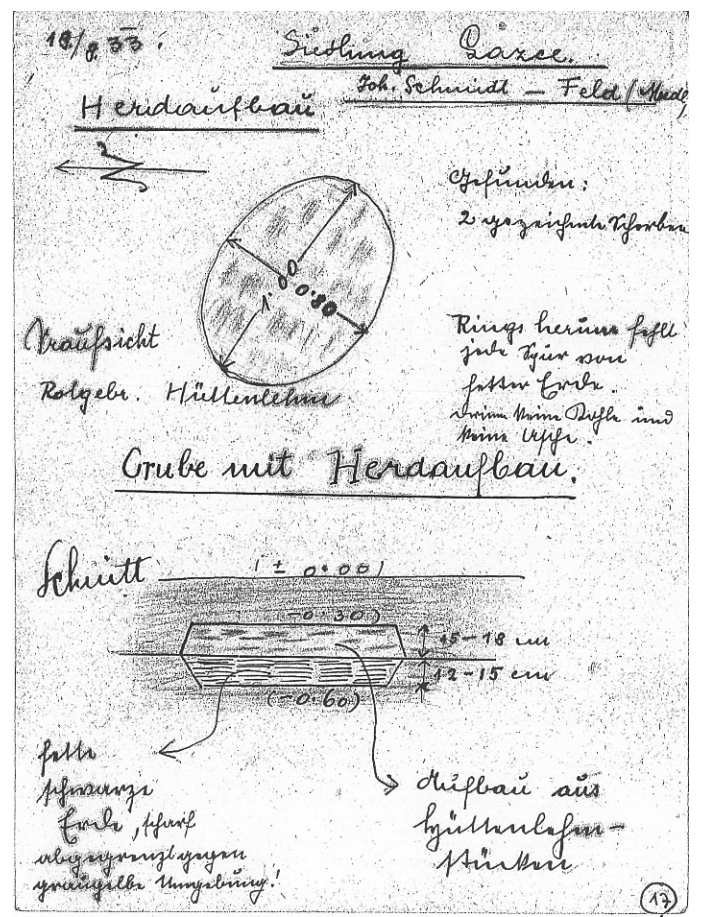 19./8. 33.
Siedlung Gázee.
Joh. Schmidt – Feld
Herdaufbau
Gefunden:
2 gezeichnete Scherben
1.00
0.80
Draufsicht
Rotgebr. Hüttenlehm
Rings herum fehlt
jede Spur von
fetter Erde.
drinn keine Kohle und
keine Asche.
Grube mit Herdaufbau.
Schnitt
(± 0.00)
(-0.30)
15–18 cm
12–15 cm
(-0.60)
fette
schwarze
Erde, scharf
abgegrenzt gegen
graugelbe Umgebung!
Aufbau aus
Hüttenlehm-
stücken
17